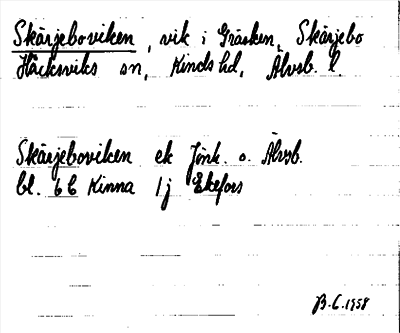 Skärjeboviken, vik i Gräsken, Skärjebo
Håcksviks sn, Kinds hd, Älvsb. l.
Skärjeboviken ek Jönk. o. Älvsb.
bl. 6 C Kinna 1 j Ekefors
B.C. 1958